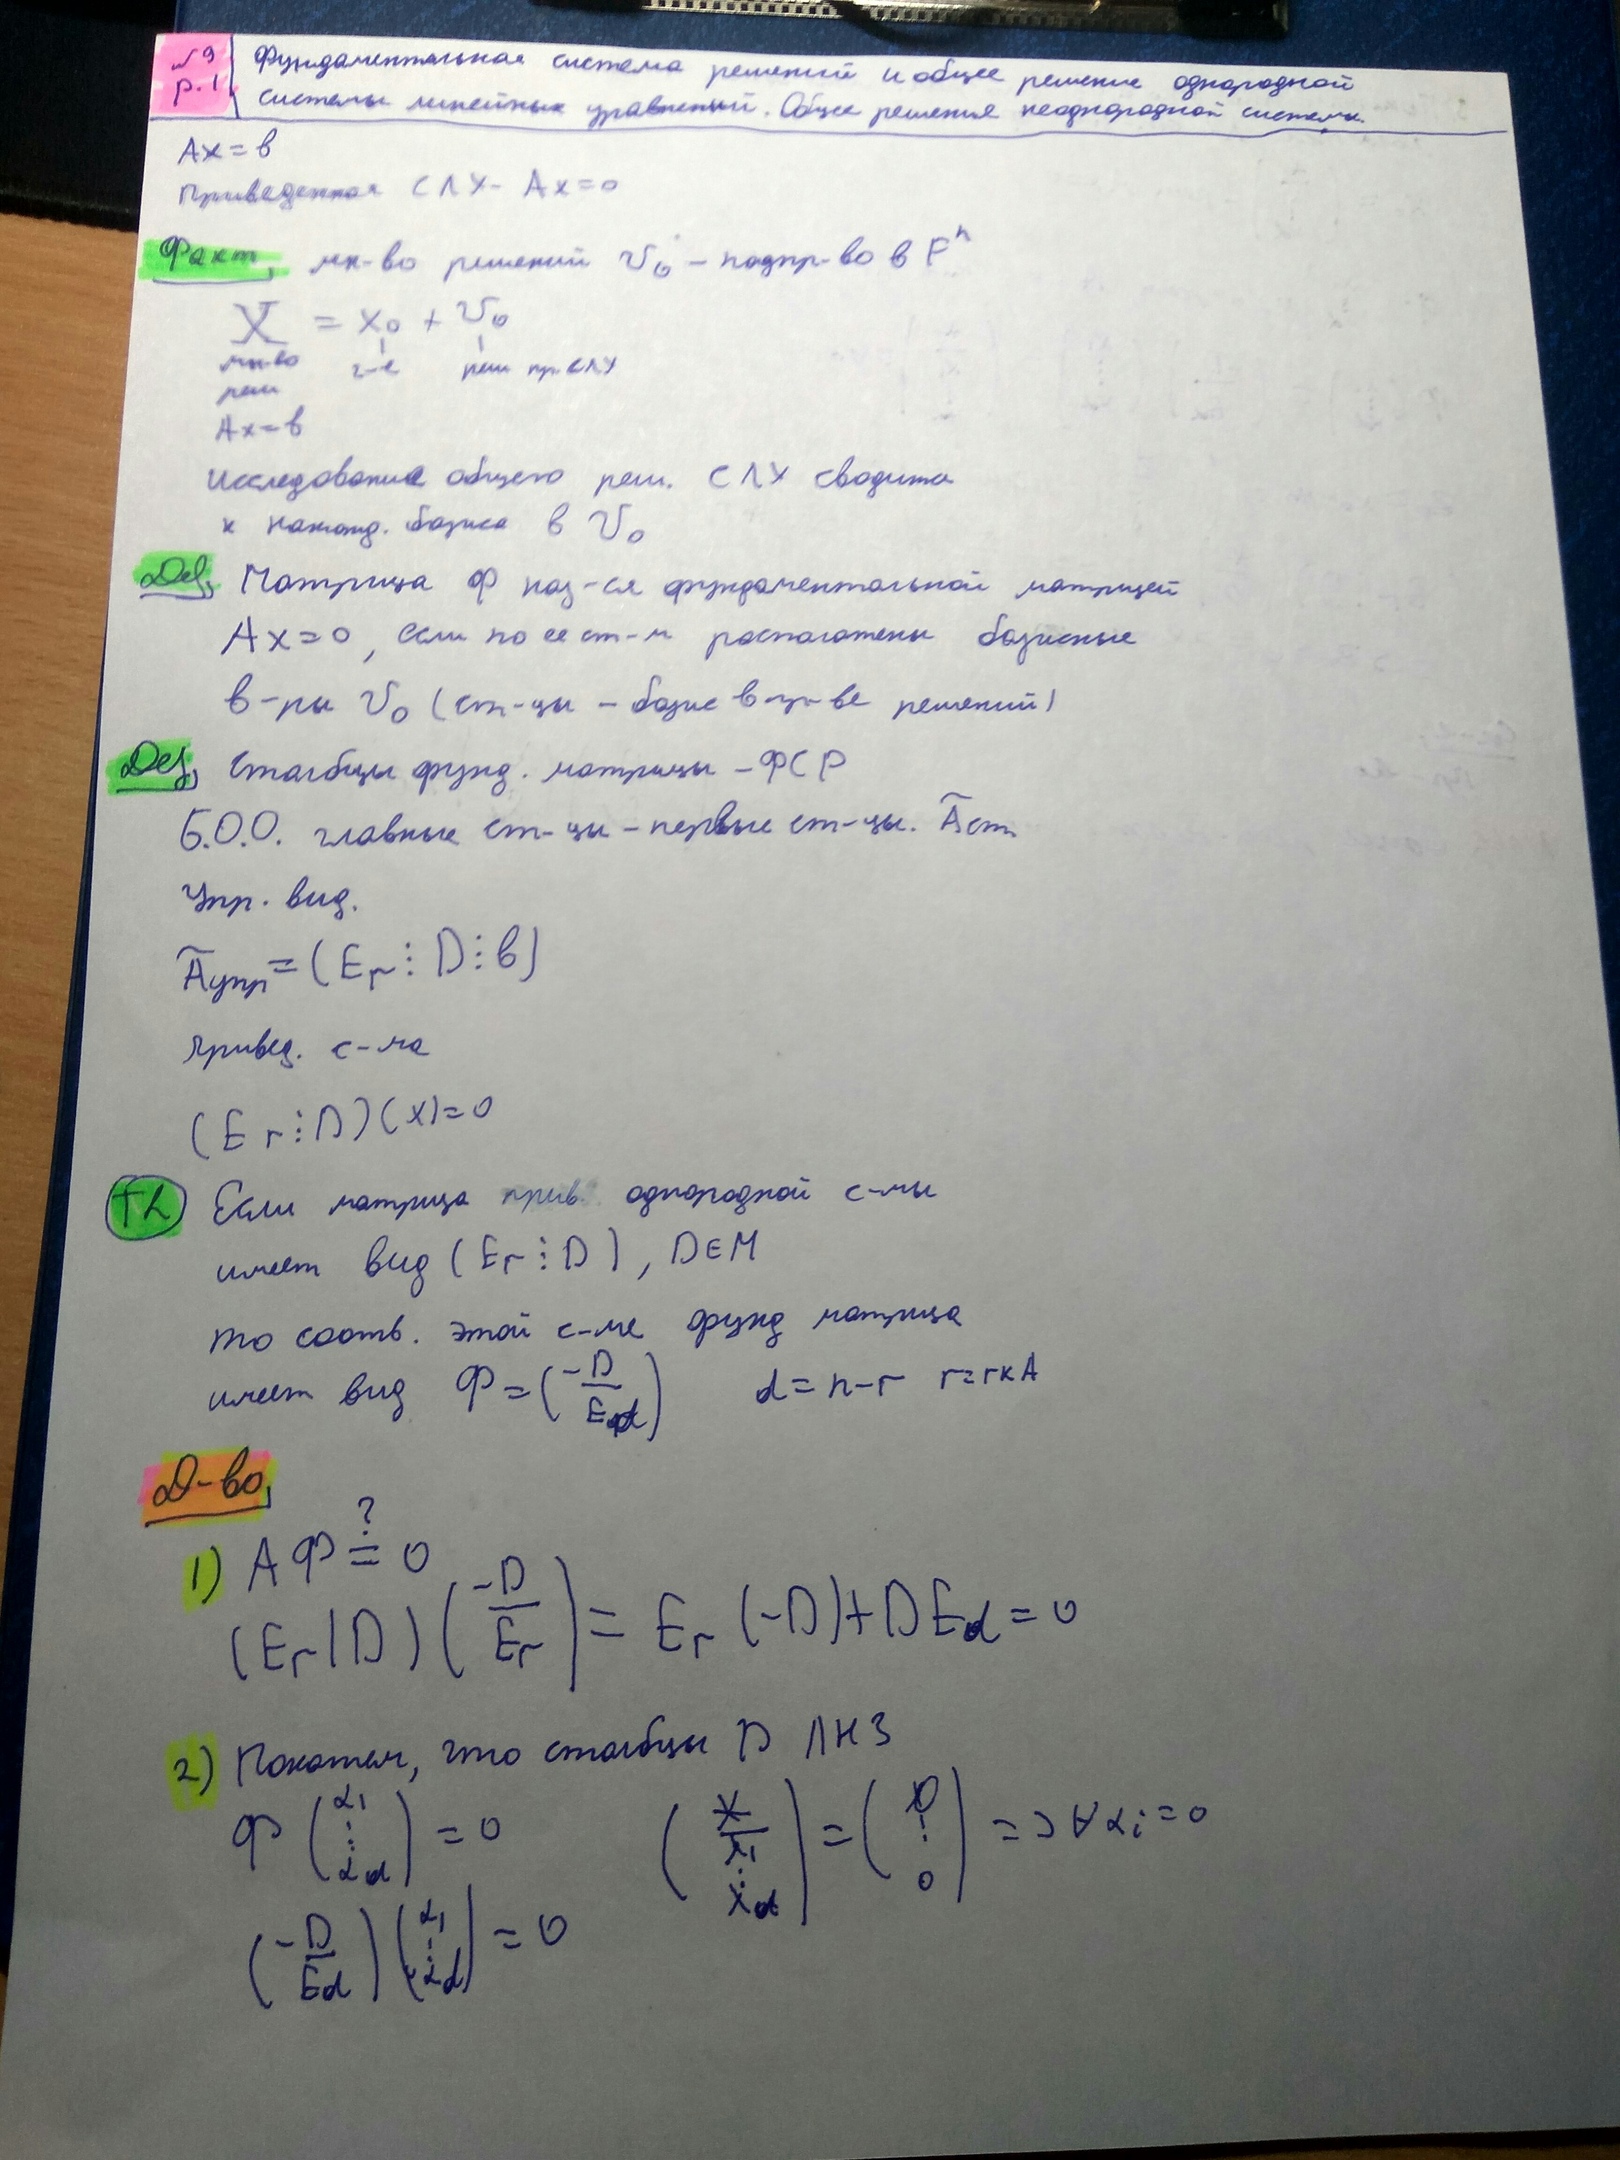 №9 Фундаментальная система решений и общее решение однородной
р.1 системы линейных уравнений. Общее решение неоднородной системы.
Ax=b
Приведенная СЛУ- Ax=0
Факт, мн-во решений V₀ – подпр-во в Fⁿ
X = x₀ + V₀
мн-во ч-е реш пр. СЛУ
реш
Ax=b
Исследование общего реш. СЛУ сводится
к нахожд. базиса в V₀
Def, Матрица Ф наз-ся фундаментальной матрицей
Ax=0, если по ее ст-м расположены базисные
в-ры V₀ (ст-цы – базис в пр-ве решений)
Def, Столбцы фунд. матрицы – ФСР
Б.О.О. главные ст-цы – первые ст-цы. Ãст
Упр. вид.
Ãупр = (Eᵣ ⋮ D ⋮ b)
привед. с-ма
(Eᵣ ⋮ D)(x)=0
Th Если матрица прив. однородной с-мы
имеет вид (Eᵣ ⋮ D), D∈M
то соотв. этой с-ме фунд матрица
имеет вид Ф = (-D/E_d) d=n-r r=rkA
Д-во,
1) AФ ≟ 0
(Eᵣ|D)(-D/Eᵣ) = Eᵣ(-D)+DE_d=0
2) Покажем, что столбцы D ЛНЗ
Ф(α₁ ⋮ α_d) = 0 (X/α₁ ⋮ α_d) = (0 ⋮ 0) => ∀αᵢ=0
(-D/E_d)(α₁ ⋮ α_d) = 0